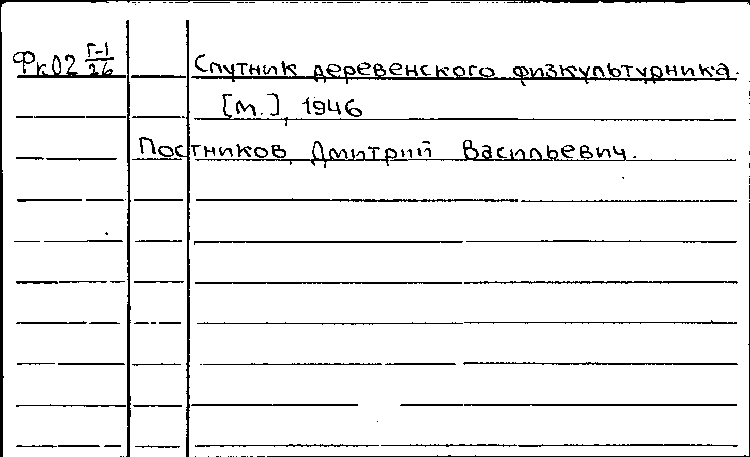 Фк02 Г-1/26 Спутник деревенского физкультурника.
[М.], 1946
Постников, Дмитрий Васильевич.